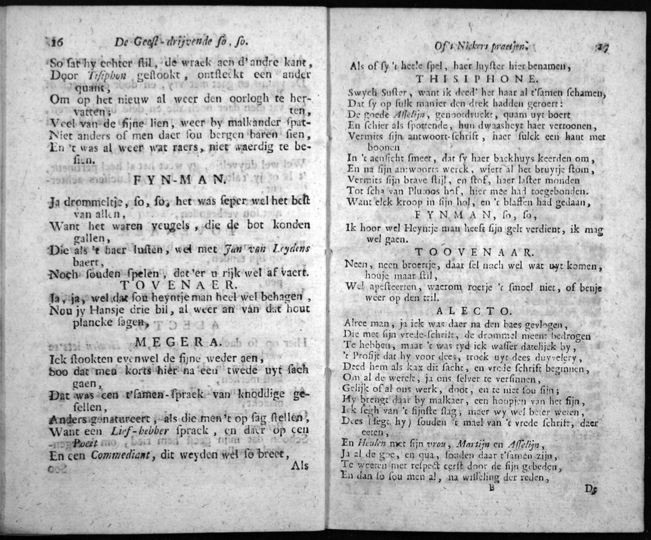 16 De Geest-drijvende so, so.
So sat hy echter stil, de wraek aen d'andre kant,
Door Tisiphon gestookt, ontsteekt een ander
quant,
Om op het nieuw al weer den oorlogh te her-
vatten; ten,
Veel van de fijne lien, weer by malkander spat-
Niet anders of men daer sou bergen baren sien,
En 't was al weer wat raers, niet waerdig te be-
sien.
FYN-MAN.
Ja drommeltje, so, so, het was seper wel het best
van allen,
Want het waren yeugels, die de bot konden
gallen,
Die als 't haer lusten, wel met Jan van Leydens
baert,
Noch souden spelen, dat'er u rijk wel af vaert.
TOVENAER.
Ja, ja, wel dat sou heyntje man heel wel behagen,
Nou jy Hansje drie bil, al weer an van dat hout
plancke sagen,
MEGERA.
Ick stookten evenwel de sijne weder aen,
soo dat men korts hier na een twede uyt sach
gaen,
Dat was een t'samen-spraek van knoddige ge-
sellen,
Anders genatureert, als die men't op sag stellen,
Want een Lief-hebber sprack, en daer op een
Poeit
En een Commediant, dit weyden wel so breet,
Als
Of 't Nickers praetjen. 17
Als of sy 't heele spel, haer luyster hier benamen,
THISIPHONE.
Swygh Suster, want ik deed' her haar al t'samen schamen,
Dat sy op sulk manier den drek hadden geroert:
De goede Asselijn, genoordruckt, quam uyt boert
En schier als spottende, hun dwaasheyt haer vertoonen,
Vermits sijn antwoort-schrift, haer sulck een hant met
boonen
In 't aensicht smeet, dat sy haer backhuys keerden om,
En na sijn antwoorts werck, wierr al het bruytje stom,
Vermits sijn brave stijl, en stof, haer laster monden
Tot scha van Plutoos hof, hier mee had toegebonden.
Want elck kroop in sijn hol, en 't blaffen had gedaan,
FYNMAN, so, so,
Ik hoor wel Heyntje man heeft sijn gelt verdient, ik mag
wel gaen.
TOOVENAAR.
Neen, neen broertje, daar sel nach wel wat uyt komen,
houje maar stil,
Wel apesteerten, waerom roetje 't smoel niet, of benje
weer op den tril.
ALECTO.
Alree man, ja ick was daer na den baes gevlogen,
Die met sijn vrede-schrift, de drommel meent bedrogen
Te hebben, maar 't was tyd ick wasser datelijck by,
't Profijt dat hy voor dees, trock uyt dees duyvelery,
Deed hem als kax dit sacht, en vrede schrift beginnen,
Om al de werelt, ja ons selver te versinnen,
Gelijk of al ons werk, doot, en te niet sou sijn;
Hy brengt daar by malkaer, een hoopjen van het sijn,
Ick segh van 't sijnste slag, maer wy wel beter weten,
Dees (segt hy) souden 't mael van 't vrede schrift, daer
eeten,
En Heulen met sijn vrou, Martijn en Asselijn,
Ja al de goe, en qua, souden daar t'samen zijn,
Te weeren met respect eerst door de sijn gebeden,
En dan so sou men al, na wisseling der reden,
B De